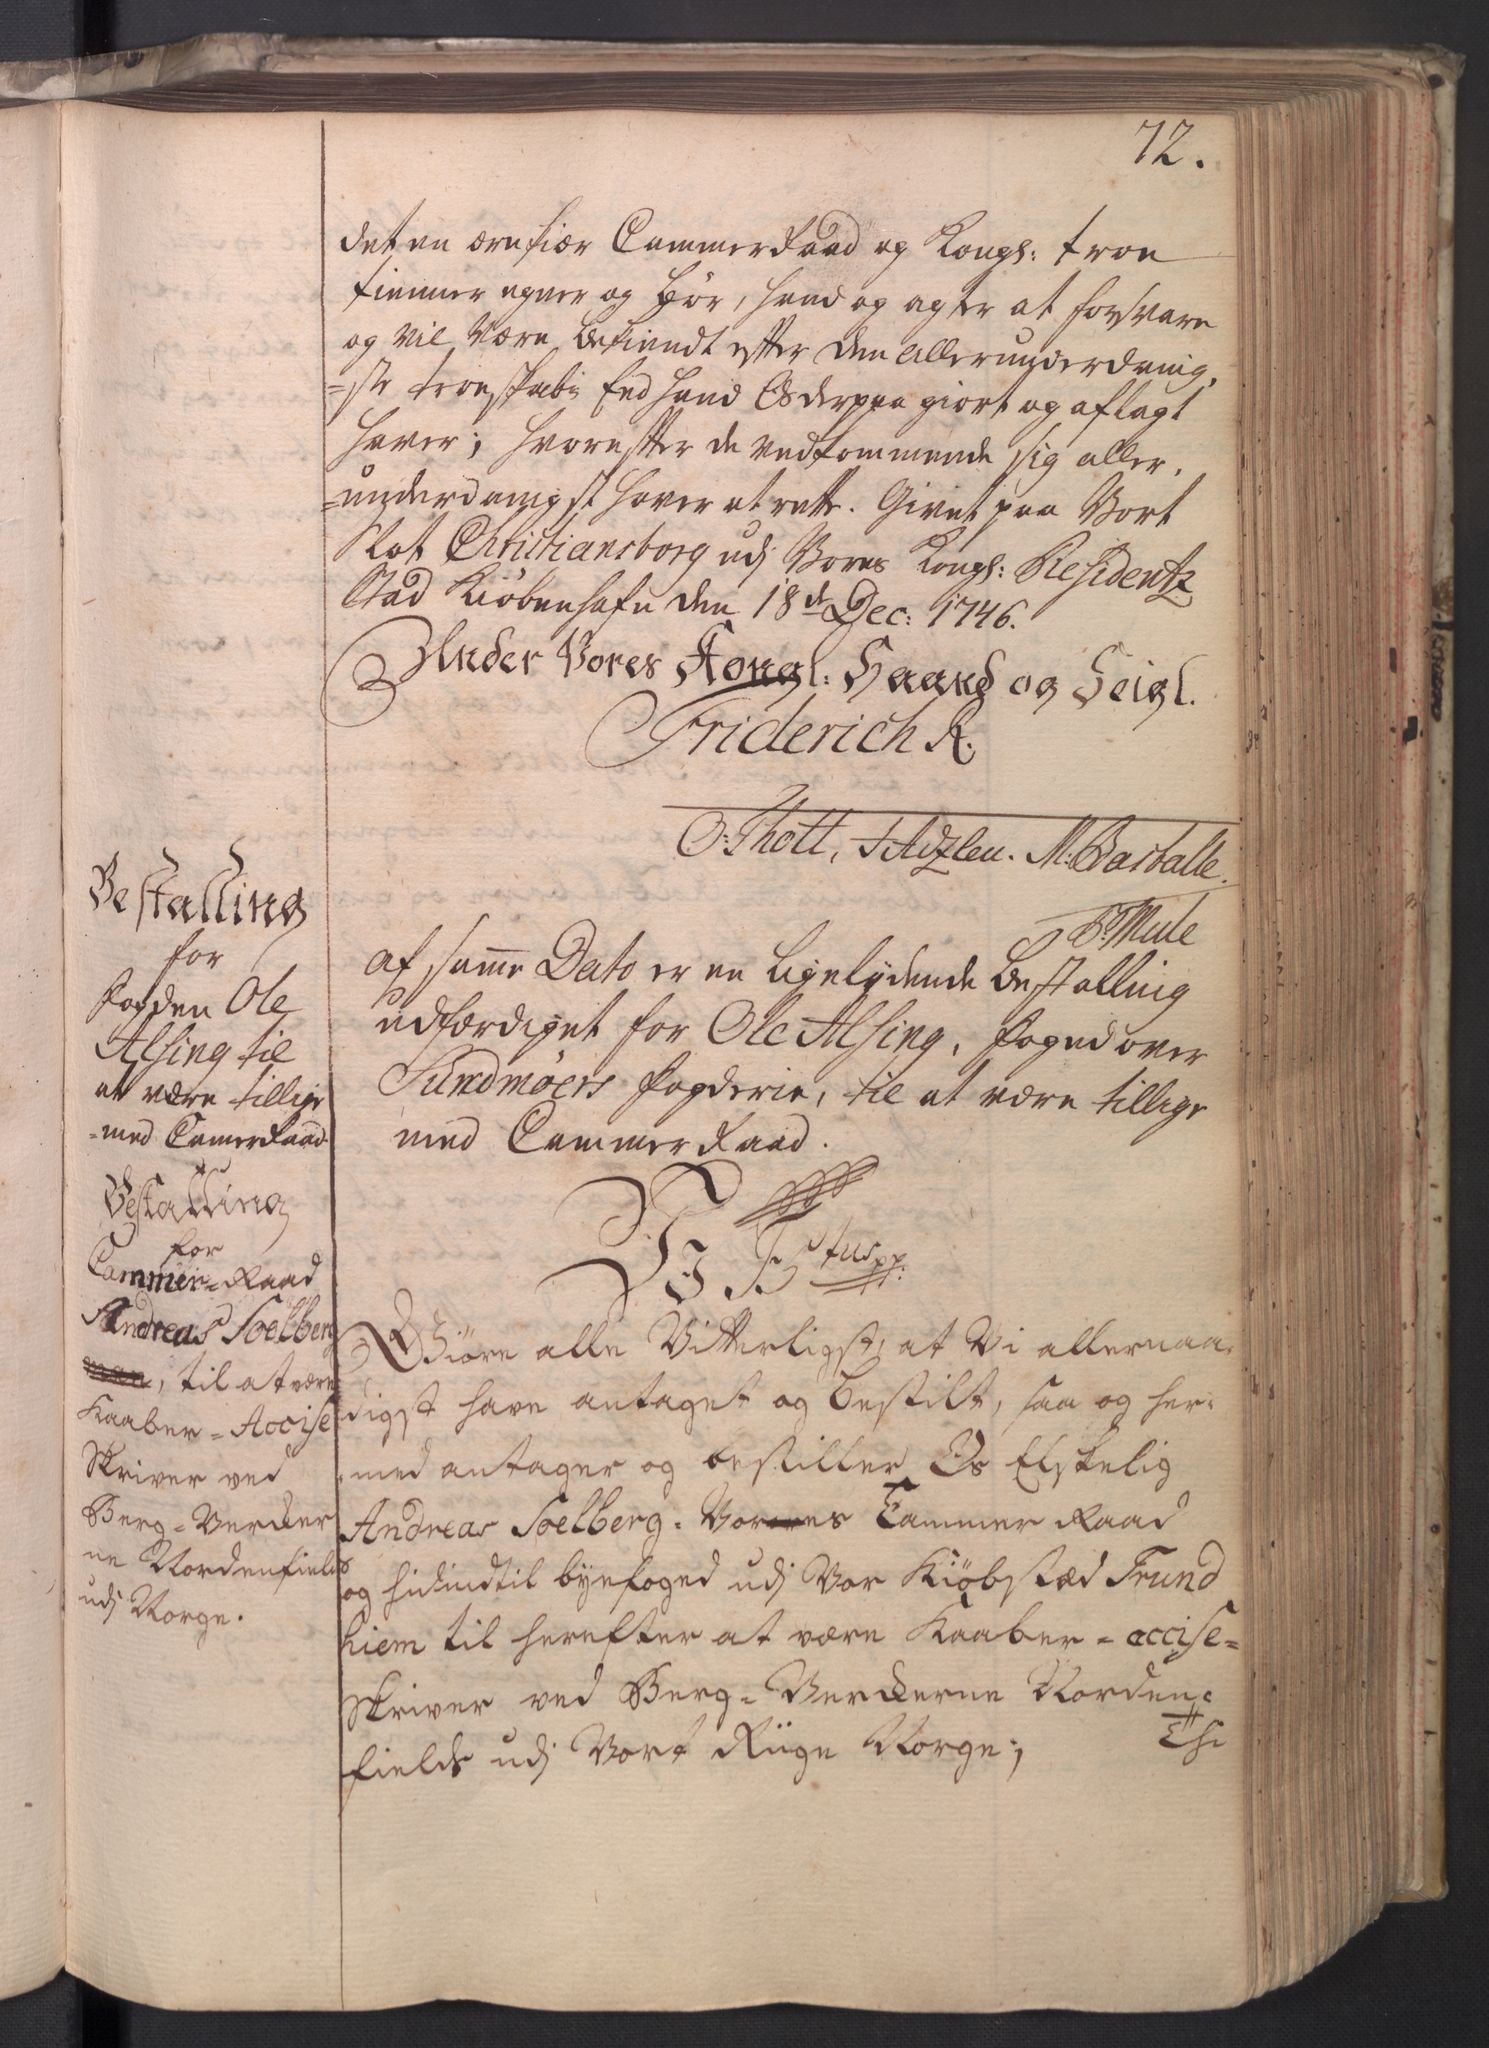 72.
det en ærekiær CammerRaad og Kongl: troe
tienner egner og bør, hand og agter at forsvare
og vil være bekiendt efter den Allerunderdanig,
=ste troeskabs Eed hand Os derpaa giort og aflagt
haver; hvorefter de vedkommende sig aller,
=underdanigst haver at rette. Givet paa Vort
Slot Christiansborg udj Vores Kongl: Residentz
Stad Kiöbenhafn den 18de Dec: 1746.
Under Vores Kongl: Haand og Seigl.
Friderich R.
O: Thott, M: Barthalle.
P: Mule
Bestalling
for
Fogden Ole
Alsing til
at være tillige
=med CamerRaad
af samme Dato er en ligelydende Bestalling
udfærdiget for Ole Alsing, Foged over
Sundmöers Fogderie, til at være tillige
med Cammer Raad.
Bestalling
for
Cammer=Raad
Andreas Soelberg
, til at være
Kaaber=Accise
Skriver ved
Berg=Verker
ne Nordenfields
udj Norge.
V F 5tus pp:
Giöre alle Vitterligt, at Vi allernaa,
digst have antaget og bestilt, saa og her=
=med antager og bestiller Os Elskelig
Andreas Soelberg. Vores Cammer Raad
og hidindtil byefoged udj Vor Kiöbstæd Trund
hiem til herefter at være Kaaber=accise=
Skriver ved Berg=Verkerne Norden=
fields udj Vort Riige Norge;
Thi